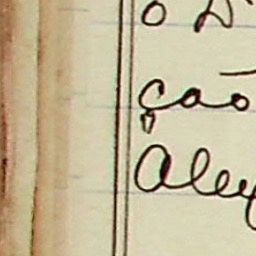 o D
ção
Alex